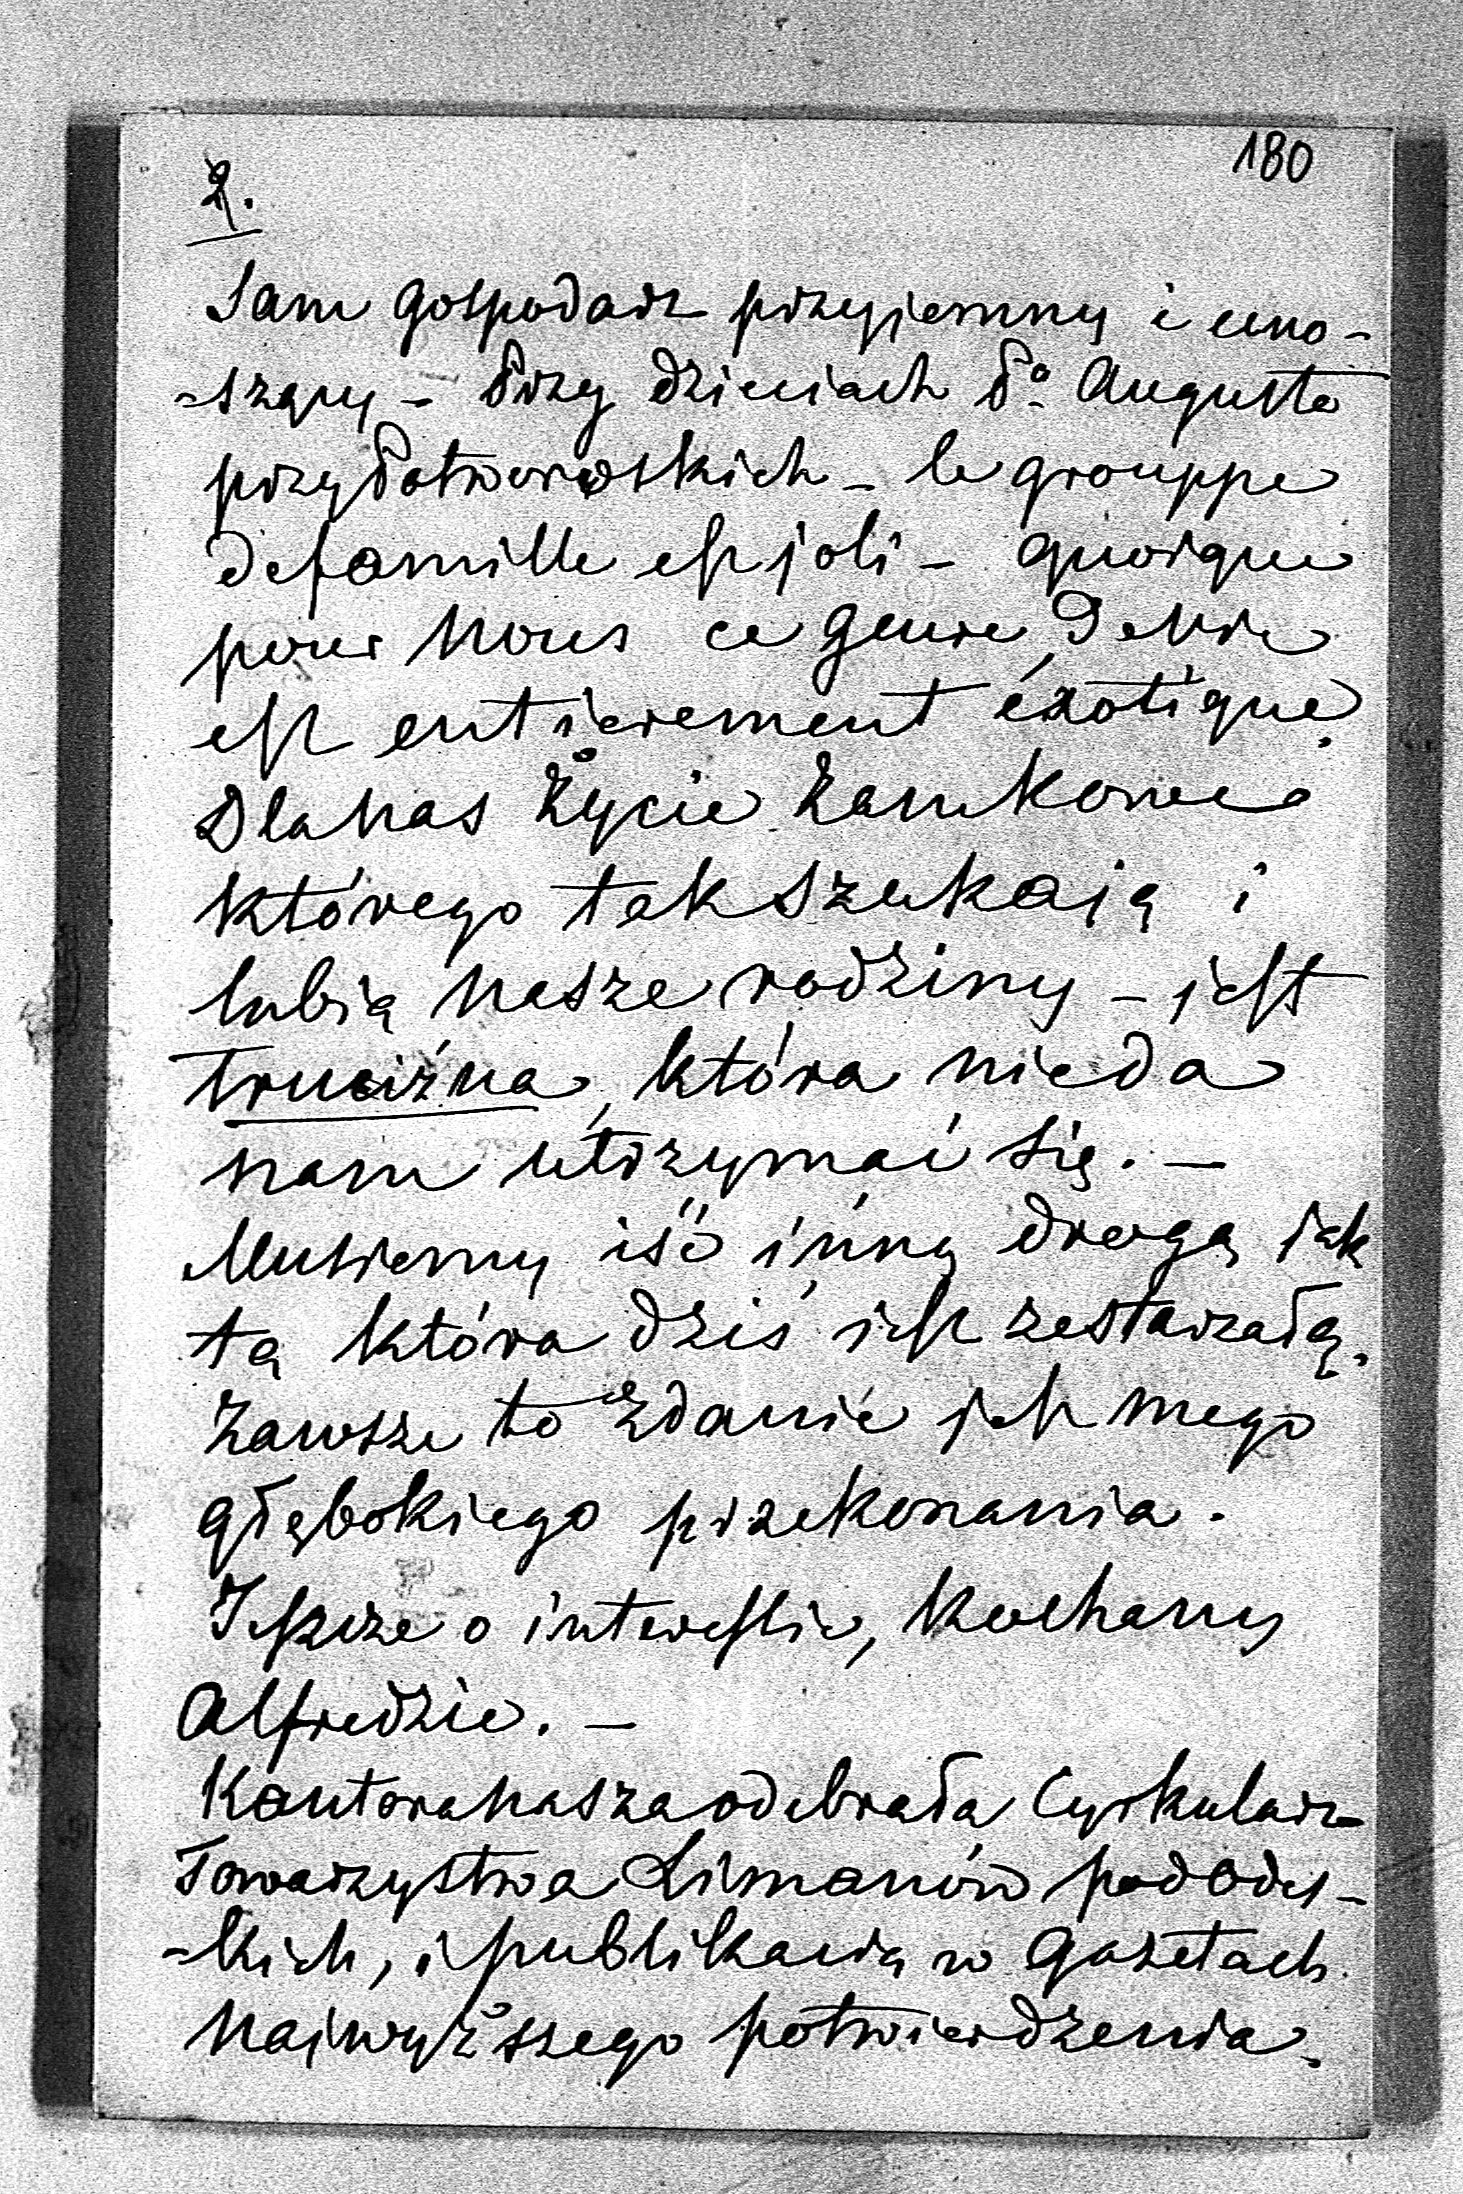 180
2.
Sam gospodarz przyjemny i uno-
-szący - Przy dzieciach Pa Augusta
przy Potworowskich - le grouppe
de famille est joli - quoique
pour nous ce genre de vie
est entierement éxotique.
Dla nas życie zamkowe
którego tak szukają i
lubią nasze rodziny - jest
trucizna, która nieda
nam utrzymać się. -
Musiemy iść inną drogą jak
tą która dziś jest zestarzałą.
Zawsze to zdanie jest mego
głębokiego przekonania.
Jeszcze o interessie, kochany
Alfredzie. -
Kantora nasza odebrała Cyrkularz
Towarzystwa Limanów pod Odes-
-kich, i publikacią w gazetach
najwyższego potwierdzenia.